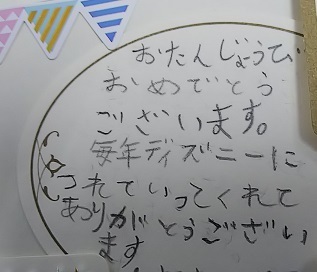 おたんじょうび
おめでとう
ございます。
毎年ディズニーに
つれていってくれて
ありがとうござい
ます